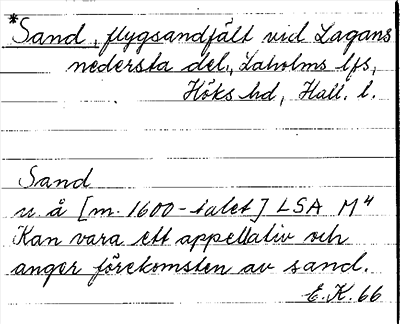 *Sand, flygsandfält vid Lagans
nedersta del, Laholms lfs,
Höks hd, Hall. l.
Sand
u å [m. 1600-talet] LSA M⁴
Kan vara ett appellativ och
anger förekomsten av sand.
E.K. 66